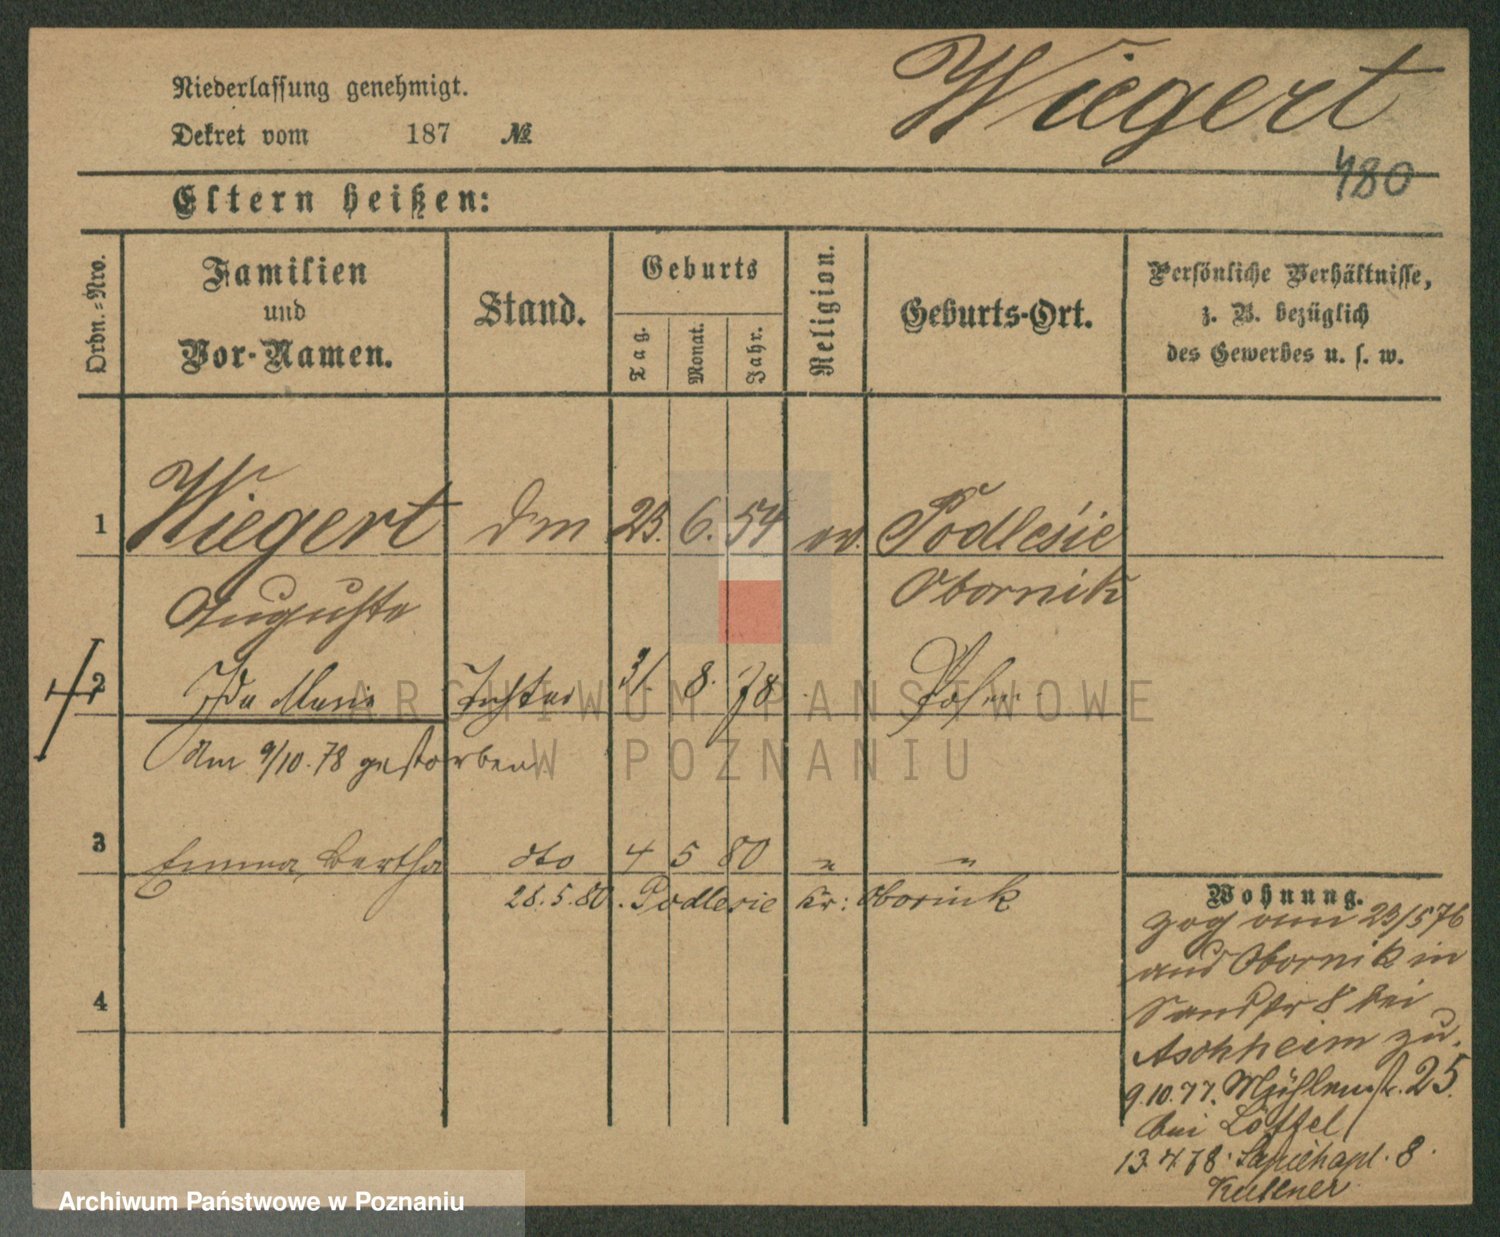 Wiegert
Niederlassung genehmigt.
Dekret vom 187 №
480
Eltern heißen:
Ordn.-Nro.
Familien
und
Vor-Namen.
Stand.
Geburts
Tag.
Monat.
Jahr.
Religion.
Geburts-Ort.
Persönliche Verhältnisse,
z. B. bezüglich
des Gewerbes u. s. w.
1 Wiegert 23. 6. 54 ev. Podlesie
Auguste Obornik
2 Ida Marie Tochter 31. 8. 78 Posen
am 9/10.78 gestorben
ARCHIWUM PAŃSTWOWE
W POZNANIU
3 Emma, Bertha dto 4 5 80 " "
28.5.80. Podlesie Kr: Obornik
4
Wohnung.
zog am 23/5 76
aus Obornik in
Sandstr 8 bei
Aschheim zu.
9.10.77. Mühlenstr. 25
bei Löffel
13.4.78. Sapiehapl. 8.
Archiwum Państwowe w Poznaniu